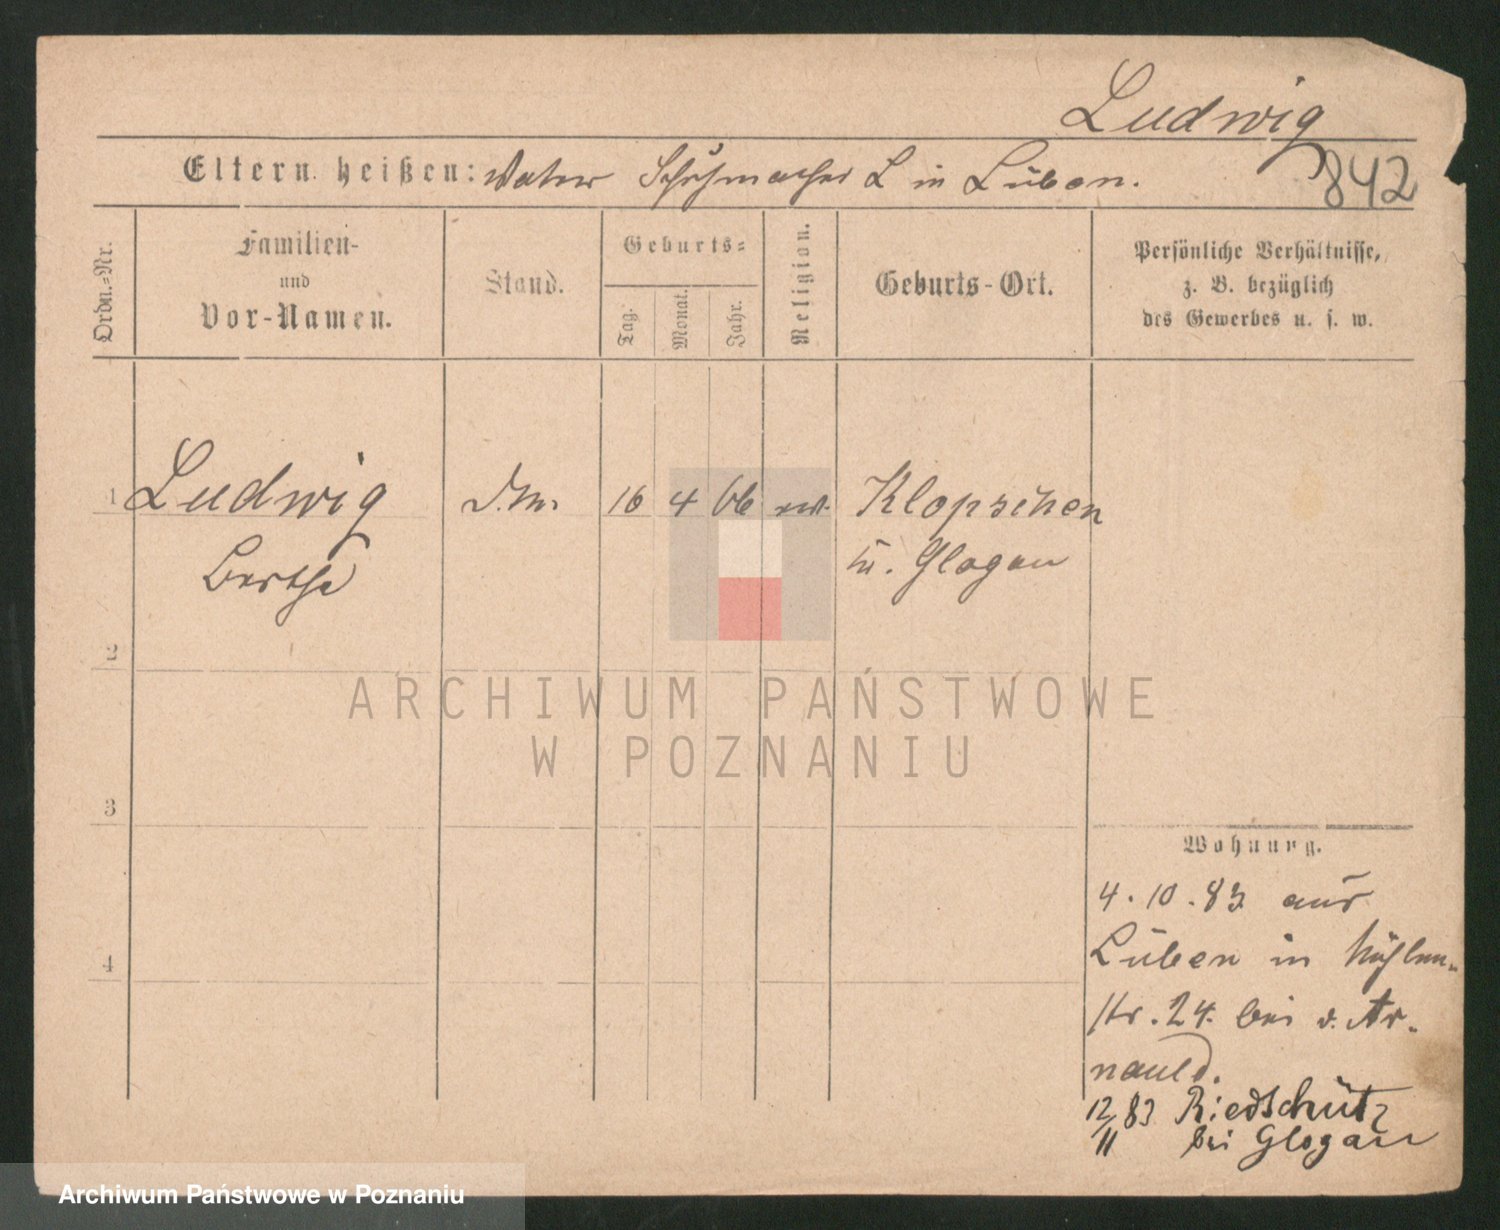 Ludwig
842
Eltern heißen: Vater Schuhmacher L in Lüben.
Ordn.-Nr.
Familien-
und
Vor-Namen.
Stand.
Geburts-
Tag.
Monat.
Jahr.
Religion.
Geburts-Ort.
Persönliche Verhältnisse,
z. B. bezüglich
des Gewerbes u. s. w.
1 Ludwig 16 4 66 Klopschen
Berthe Glogau
2
3
4
ARCHIWUM PAŃSTWOWE
W POZNANIU
Wohnung.
4.10.83 aus
Lüben in Mühlen-
str. 24. bei v. Ar-
nauld.
12/11 83 Riedschütz
bei Glogau
Archiwum Państwowe w Poznaniu